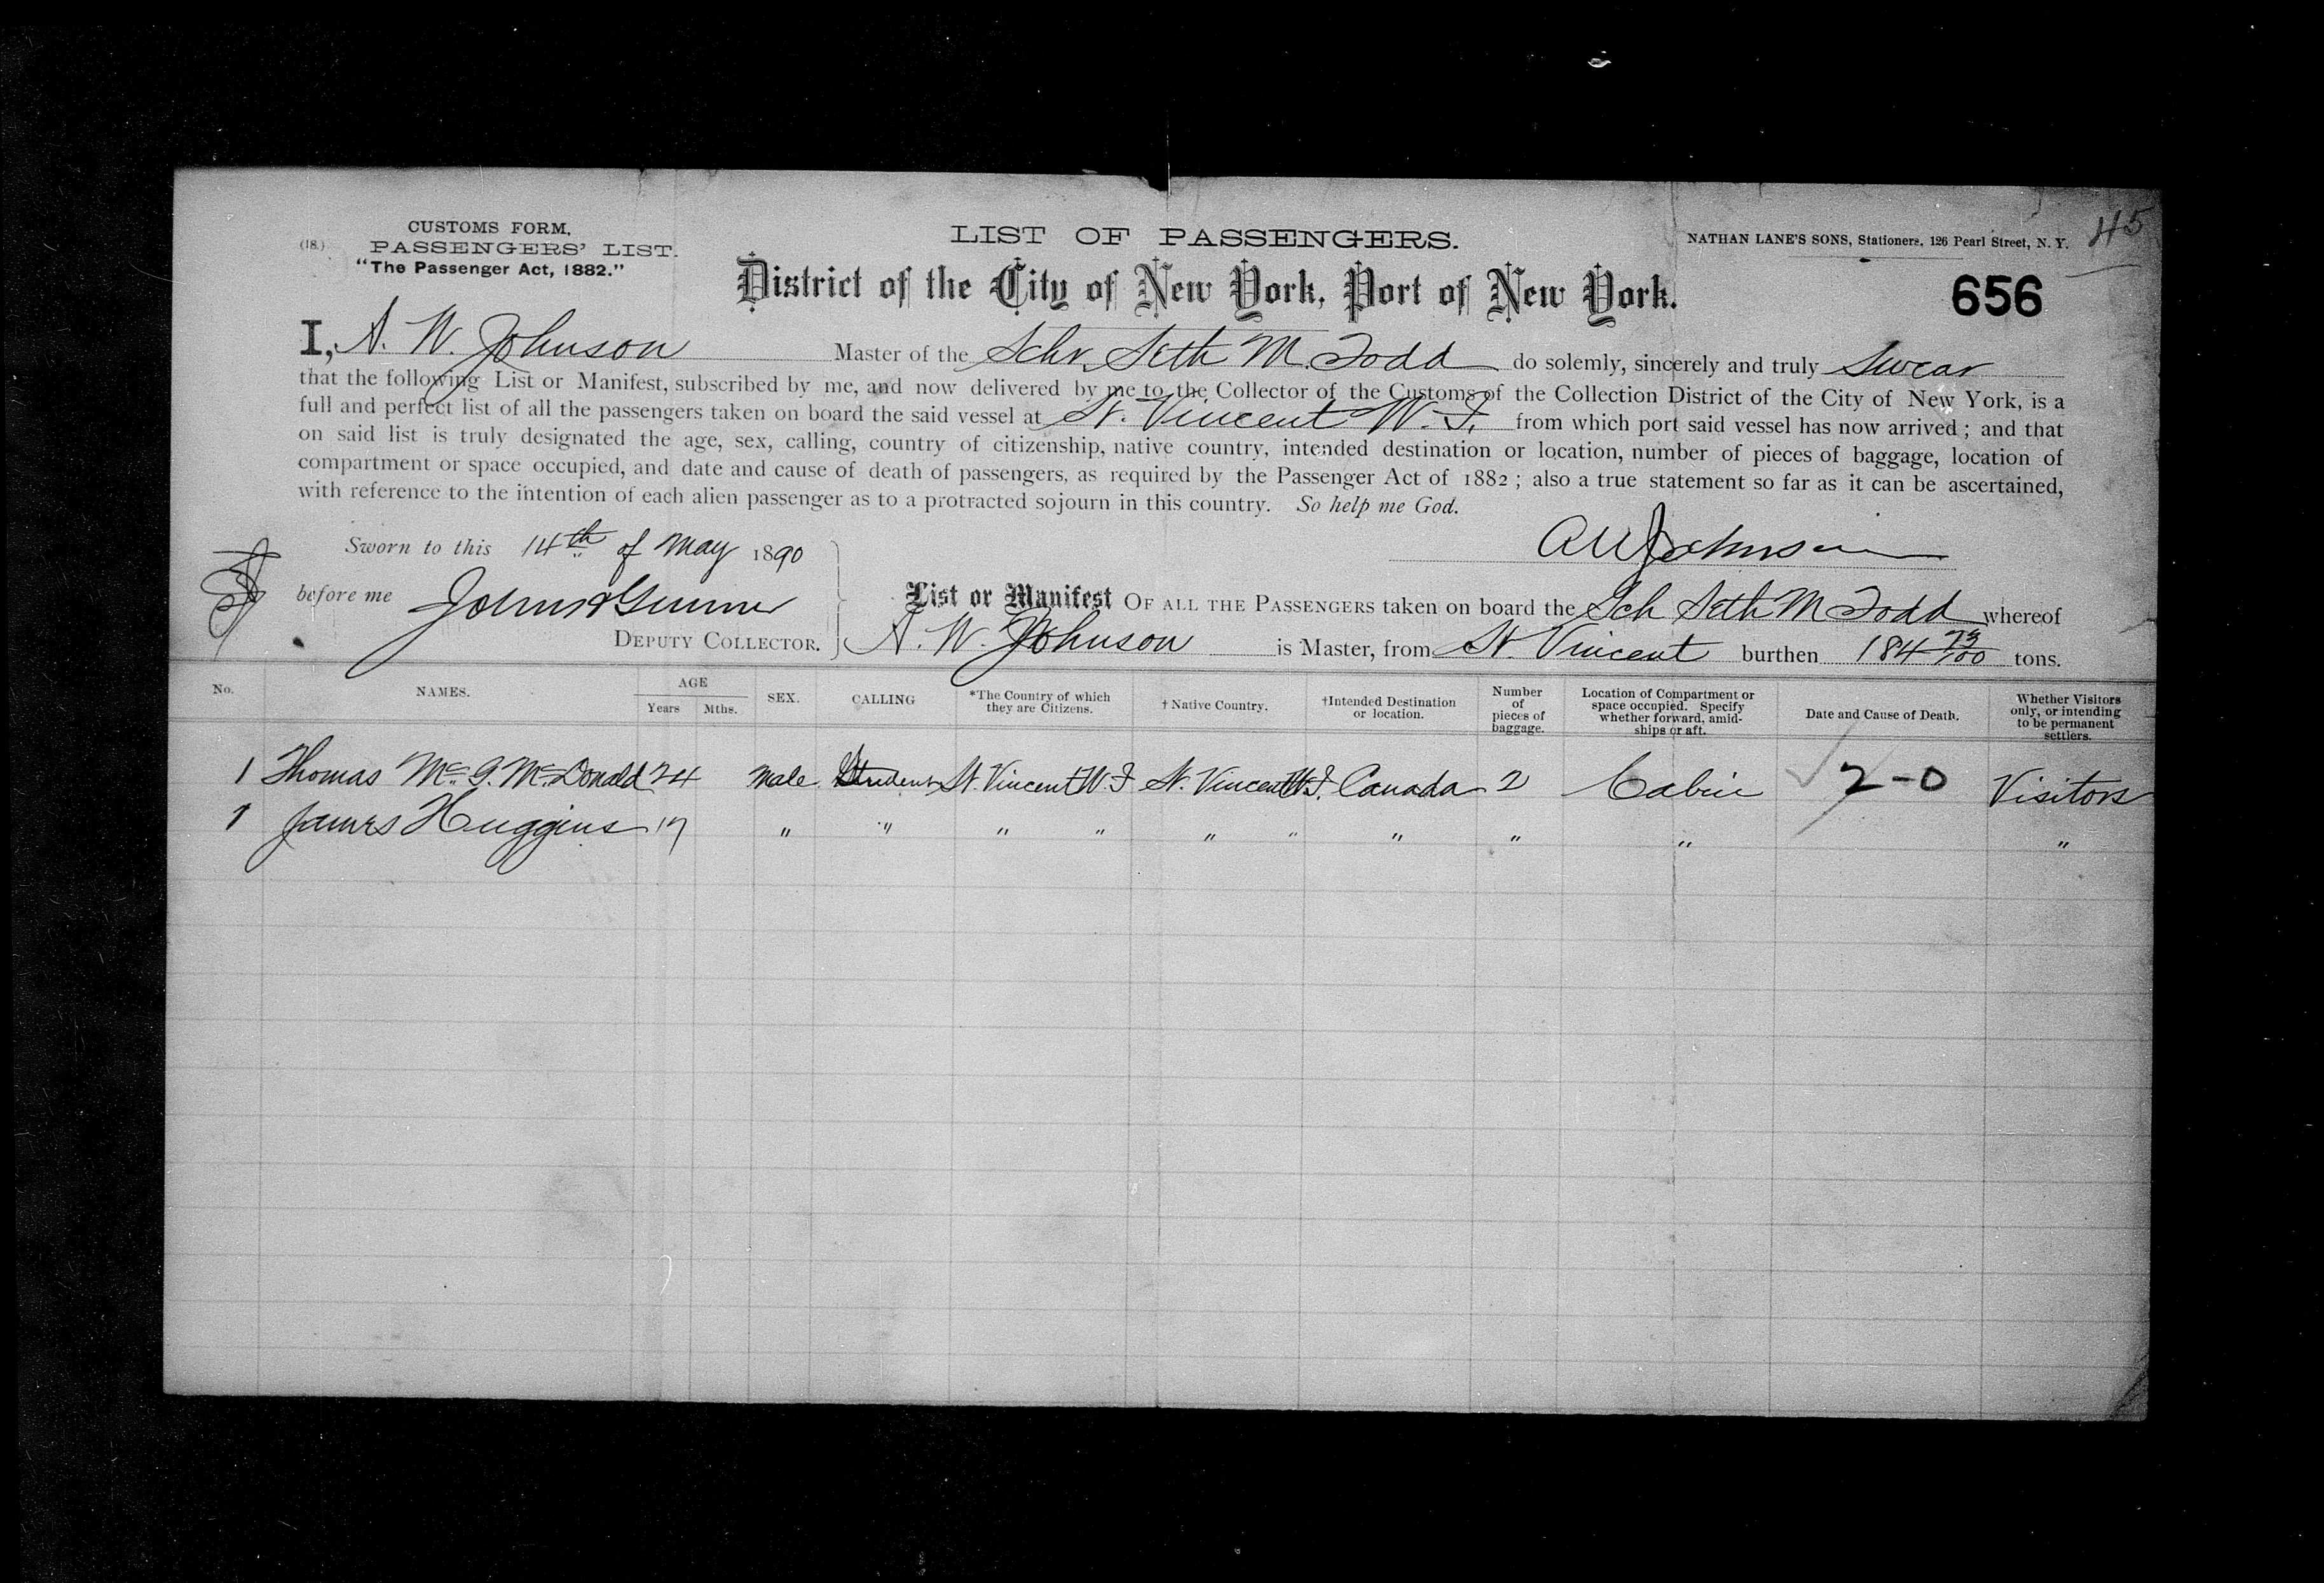 CUSTOMS FORM.
(18.) PASSENGERS' LIST.
"The Passenger Act, 1882."
LIST OF PASSENGERS.
NATHAN LANE'S SONS, Stationers, 126 Pearl Street, N. Y.
45
District of the City of New York, Port of New York.
656
I, A. W. Johnson Master of the Schr Seth M. Todd do solemly, sincerely and truly Swear
that the following List or Manifest, subscribed by me, and now delivered by me to the Collector of the Customs of the Collection District of the City of New York, is a
full and perfect list of all the passengers taken on board the said vessel at St. Vincent W. I. from which port said vessel has now arrived; and that
on said list is truly designated the age, sex, calling, country of citizenship, native country, intended destination or location, number of pieces of baggage, location of
compartment or space occupied, and date and cause of death of passengers, as required by the Passenger Act of 1882; also a true statement so far as it can be ascertained,
with reference to the intention of each alien passenger as to a protracted sojourn in this country. So help me God.
Sworn to this 14th of May 1890
A W Johnson
before me
DEPUTY COLLECTOR.
List or Manifest OF ALL THE PASSENGERS taken on board the Sch Seth M Todd whereof
A. W. Johnson is Master, from St. Vincent burthen 184 73/100 tons.
No. NAMES. AGE Years Mths. SEX. CALLING *The Country of which they are Citizens. † Native Country. †Intended Destination or location. Number of pieces of baggage. Location of Compartment or space occupied. Specify whether forward, amid-ships or aft. Date and Cause of Death. Whether Visitors only, or intending to be permanent settlers.
1 Thomas Mc G. McDonald 24 Male Student St. Vincent W. I St. Vincent W. I. Canada 2 Cabin 2-0 Visitors
1 James Huggins 17 " " " " " " " " " "